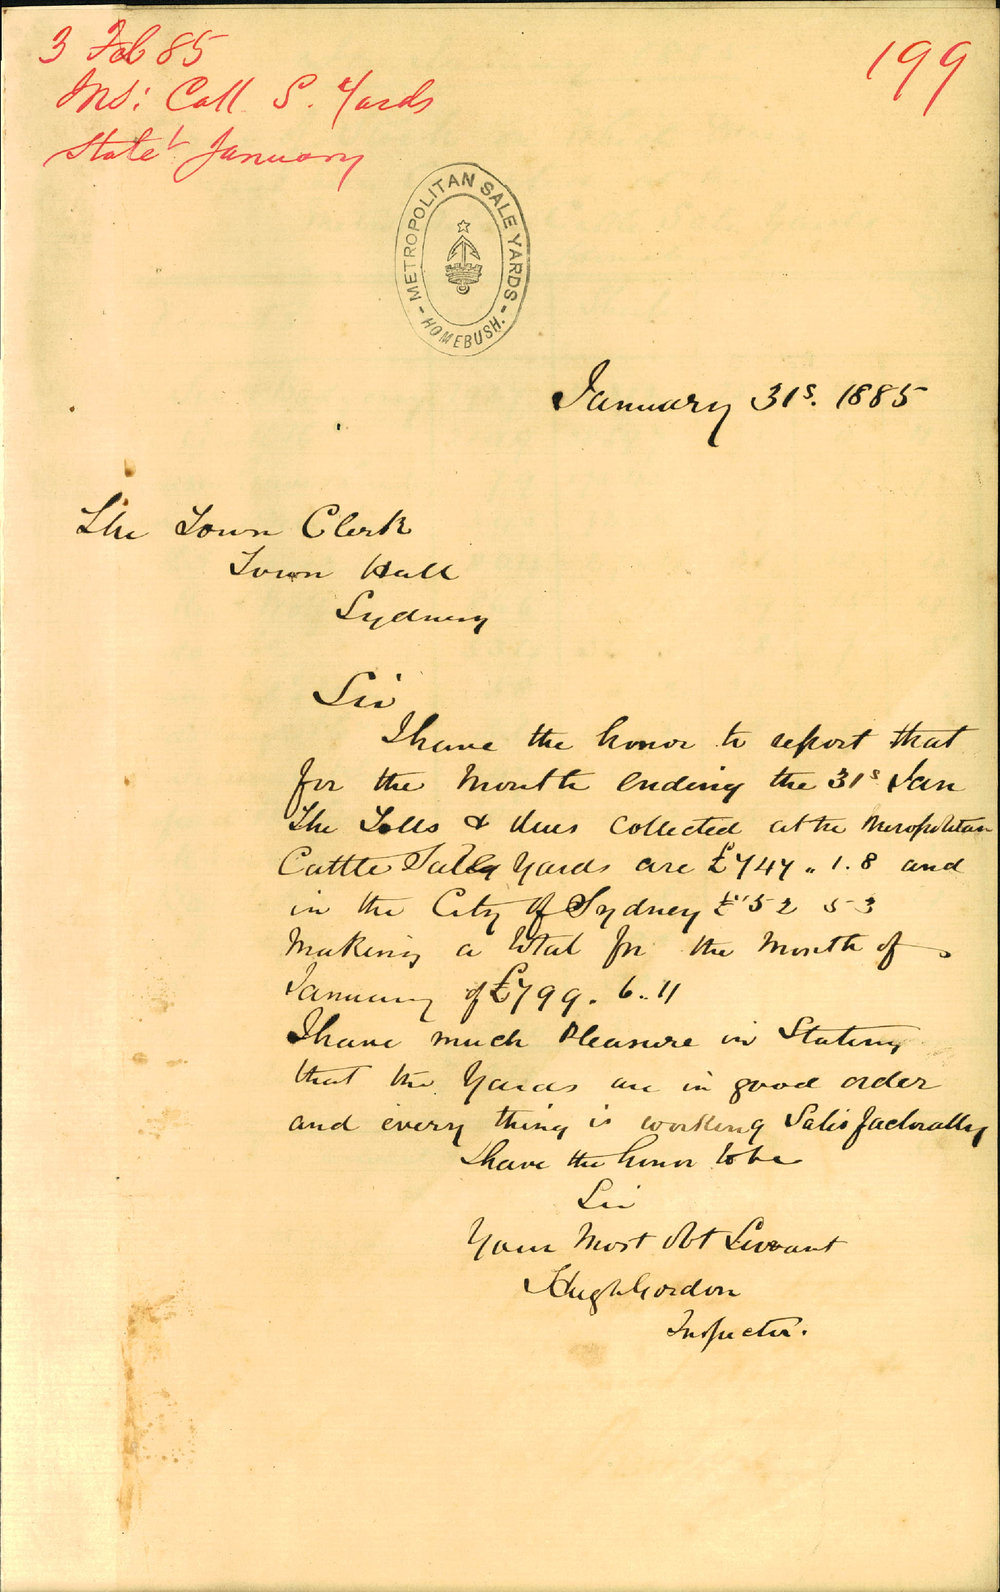 3 Feb 85
199
Ins: Catl S. Yards
Statet January
METROPOLITAN SALE YARDS
- HOMEBUSH. -
January 31s. 1885
The Town Clerk
Town Hall
Sydney
Sir
I have the honor to report that
for the Month ending the 31s Jan
The Tolls & dues Collected at the Meropolitan
Cattle Yards are £747 ,, 1. 8 and
in the City of Sydney £52 5 3
Making a total for the Month of
January of £799. 6.. 11
I have much Pleasure in Stating
that the Yards are in good order
and every thing is working Satisfactorally
I have the honor to be
Sir
Your Most Obt Servant
Hugh Gordon
Inspector.